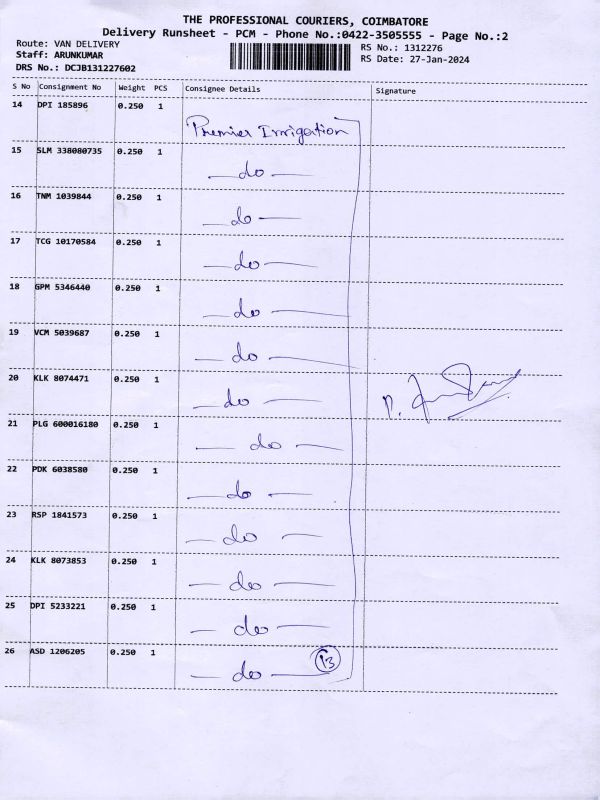 THE PROFESSIONAL COURIERS, COIMBATORE
Delivery Runsheet - PCM - Phone No.:0422-3505555 - Page No.:2
Route: VAN DELIVERY
Staff: ARUNKUMAR
DRS No.: DCJB131227602
RS No.: 1312276
RS Date: 27-Jan-2024
S No Consignment No Weight PCS Consignee Details Signature
14 DPI 185896 0.250 1 Premier Irrigation
15 SLM 338080735 0.250 1 — do —
16 TNM 1039844 0.250 1 — do —
17 TCG 10170584 0.250 1 — do —
18 GPM 5346440 0.250 1 — do —
19 VCM 5039687 0.250 1 — do —
20 KLK 8074471 0.250 1 — do —
21 PLG 600016180 0.250 1 — do —
22 PDK 6038580 0.250 1 — do —
23 RSP 1841573 0.250 1 — do —
24 KLK 8073853 0.250 1 — do —
25 DPI 5233221 0.250 1 — do —
26 ASD 1206205 0.250 1 — do — 13